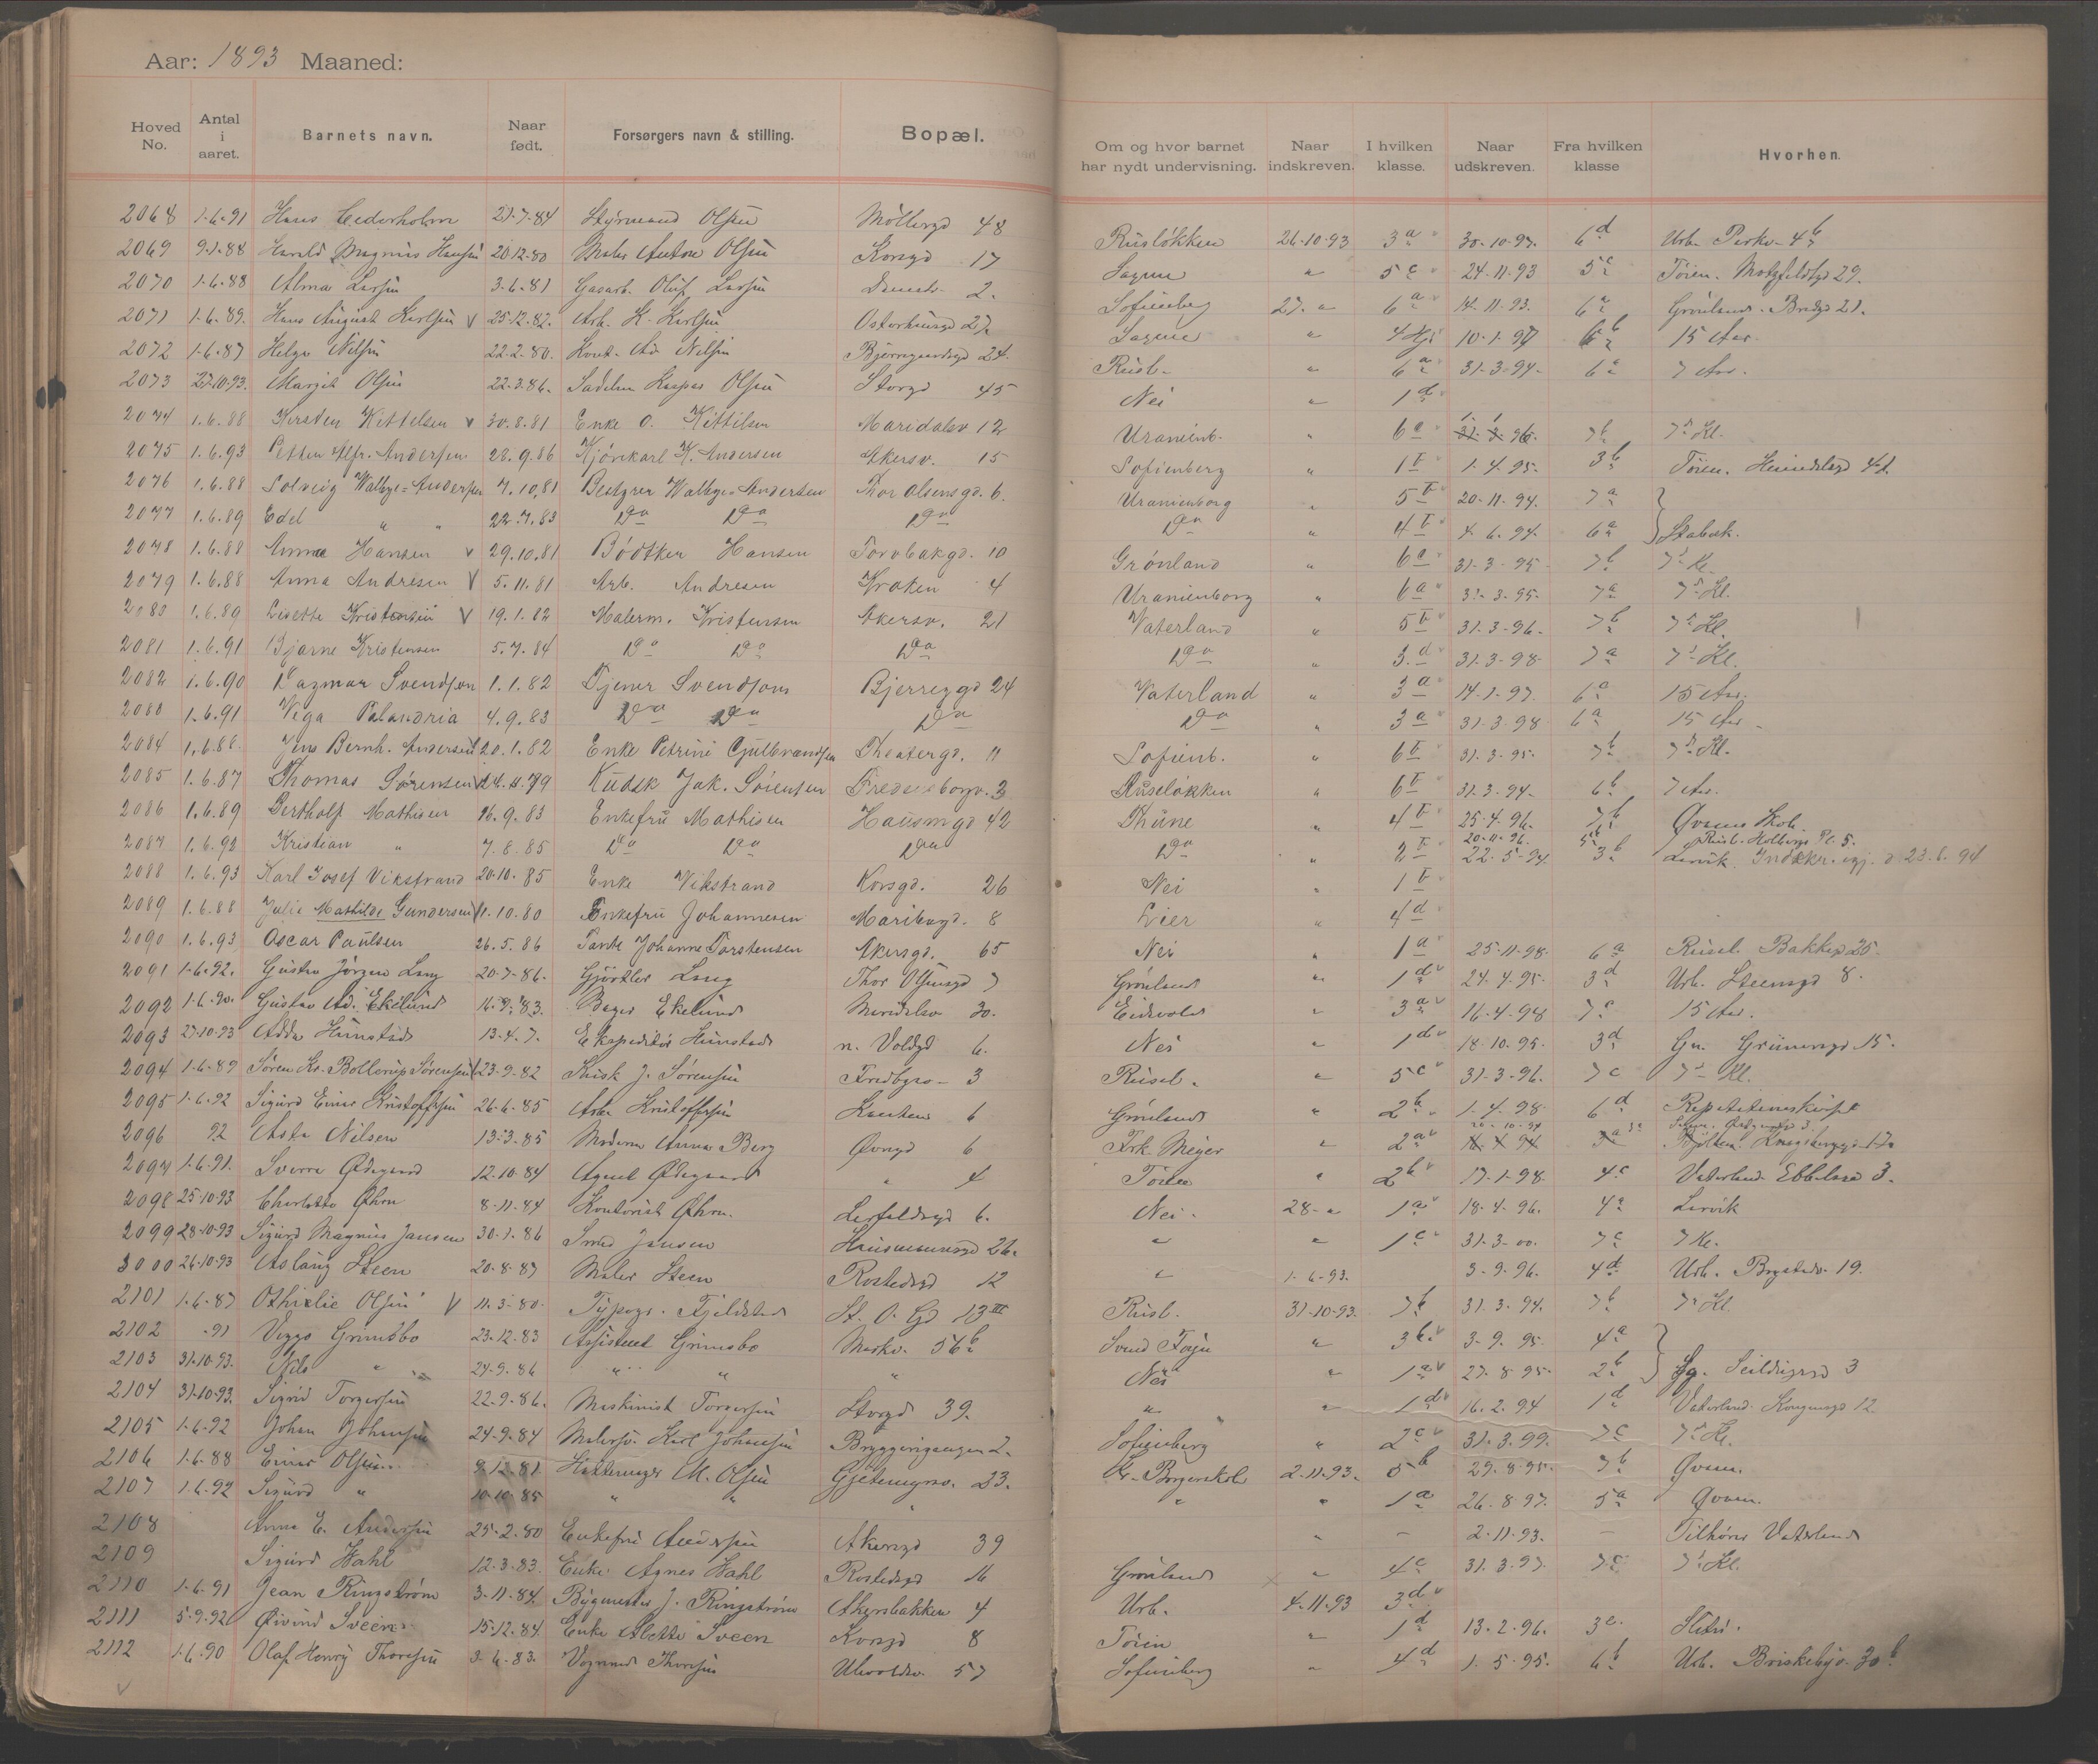 Aar: 1893 Maaned:
Hoved No. Antal i aaret. Barnets navn. Naar født. Forsørgers navn & stilling. Bopæl. Om og hvor barnet har nydt undervisning. Naar indskreven. I hvilken klasse. Naar udskreven. Fra hvilken klasse Hvorhen.
2068 1-6-91 Hans Cederholm 21-7-84 Styrmand Olsen Møllergd 48 Rusløkken 26-10-93 3a 30-10-97. 6d Urb. Parkv. 4b
2069 9-1-88 Harald Magnus Hansen 20-12-80 Maler Anton Olsen Korsgd 17 Sagene " 5c 24-11-93 5c Tøien. Motzfeldtsgd 29.
2070 1-6-88 Alma Larsen 3-6-81 Gasarb. Oluf Larsen 2. Sofienberg 27. " 6a 14-11-93. 6a Grønland. Bredgd 21.
2071 1-6-89. Hans August Karlsen V 25-12-82. Arb. K. Karlsen Osterhausgd 27. Sagene " 10-1-97 6b 15 Aar.
2072 1-6-87 Helga Nilsen 22-2-80. Kont. Ad. Nilsen 24. Rusl. " 6a 31-3-94. 6a 7 Aar.
2073 27-10-93. Margit Olsen 22-3-86. Sadelm Kaspar Olsen Storgd 45 Nei " 1d
2074 1.6.88 Kirsten Kittelsen v 30.8.81 Enke O. Kittilsen Maridalsv 12 Uranienb. " 6a 7b 7de Kl.
2075 1.6.93 Petter Alfr. Andersen 28.9.86 Kjørekarl K. Andersen Akersv. 15 Sofienberg " 1b 1.4.95. 3b Tøien. Heimdalsgd 41.
2076 1.6.88 Solveig Walbye-Andersen 7.10.81 Bestyrer Walbye-Andersen Thor Olsensgd. 6. Uranienborg " 5b 20-11-94. 7a
2077 1.6.89 Edel " " 22.7.83 Do Do Do Do " 4b 4.6.94. 6a } Stabæk.
2078 1.6.88 Anna Hansen v 29.10.81 Bødtker Hansen Torvbakgd. 10 Grønland " 6a 31-3-95. 7b 7de Kl.
2079 1.6.88 Anna Andresen V 5.11.81 Arb. Andresen Kroken 4 Uranienborg " 6a 31-3-95. 7a 7de Kl.
2080 1.6.89 Lisette Kristensen V 19.1.82 Malerm. Kristensen Akersv. 21 Vaterland " 5b 31.3-96. 7b 7de Kl.
2081 1.6.91 Bjarne Kristensen 5.7.84 Do Do Do Do " 3.d 31.3-98. 7a 7de Kl.
2082 1.6.90 Dagmar Svendson 1.1.82 Tjener Svendson Bjerregd 24 Vaterland " 3a 14-1-97. 6a 15 Aar.
2083 1.6.91 Viga Palandria 4.9.83 Do Do Do Do " 3a 31.3-98 6a 15 Aar.
2084 1.6.88. Jens Bernh. Andersen 20.1.82 Enke Petrine Gulbrandsen Theatergd. 11 Sofienb. " 6b 31.3-95. 7b 7de Kl.
2085 1.6.87 Thomas Sørensen V Kudsk Jak. Sørensen Fredensborgv. 3 Ruseløkken " 6b 31-3-94. 6b 7 Aar.
2086 1.6.89 Bertholf Mathisen 16.9.83 Enkefru Mathisen Hausmgd 42 Thune " 4b 25-4-96. 7b Øvrum Skole.
2087 1.6.92 Kristian " 7.8.85 Do Do Do Do " 2b 20-11-96. 22.5-94 5b 3b Rusl. Holbergs Pl. 5. Larvik. Indskr. igj. d 23.8.94
2088 1.6.93 Karl Josef Vikstrand 20.10.85 Enke Vikstrand Korsgd. 26 Nei " 1b
2089 1.6.88 Julie Mathilde Gundersen V 1.10.80 Enkefru Johannesen Maribogd. 8 Lier " 4d
2090 1.6.93 Oscar Paulsen 26.5.86 Tante Johanne Torstensen Akersgd. 65 Nei " 1a 25-11-98. 6a Rusel. Bakkegd 25.
2091 1-6-92. Gustav Jørgen Lang 20-7-86. Gjørtler Lang Thor Olsensgd 7 Grønland " 1d 24-4-95. 3d Urb. Steensgd 8.
2092 1-6-90. Gustav Ad. Ekelund 16-9-83. Bager Ekelund Maridalsv 30. Eidsvold " 3a 16-4-98 7c 15 Aar.
2093 27-10-93 Adda Hunstad 13-4-7. Ekspeditør Hunstad n. Voldgd 6. Nei " 1d 18-10-95. 3d Gr. Grünersgd 15.
2094 1-6-89 Søren Kr. Bollerup Sørensen 23-9-82 Kusk J. Sørensen Fredbgsv. 3 Rusel. " 5c 31-3-96. 7c 7de Kl.
2095 1-6-92 Sigurd Einar Kristoffersen 26-6-85 Arb. Kristoffersen 6 Grønland " 2b 1.4.98. 6d
2096 92 Asta Nilsen 13-3-85 Madame Anna Berg Øvregd 6 Frk. Meyer " 2a
2097 1-6-91. Sverre Ødegaard 12-10-84 Agent Ødegaard " 4 Tøien " 2b 17-1-98. 4c Vaterland Ebbelsgd 3.
2098 25-10-93 Charlotte Øhrn 8-11-84 Kontorist Øhrn. 6. Nei. 28- " 1a 18-4-96. 4a Larvik
2099 28-10-93 Sigurd Magnus Jansen 30-1-86 Smed Jansen Hausmannsgd 26. " " 1c 31-3-00. 7c 7 Kl.
3000 26-10-93 Aslaug Steen 20-8-87 Maler Steen Rostedsgd 12 " 1-6-93. 3-9-96. 4d Urb. Bogstadv. 19.
2101 1-6-87 Othielie Olsen V 11-3-80. Typogr. Fjeldstad St. O. Gd 13 III Rusl. 31-10-93. 7b 31-3-94. 7b 7de Kl.
2102 -91 Viggo Grimsbo 23-12-83 Assistent Grimsbo Markv. 56b " 3b 3-9-95. 4a
2103 31-10-93. Nils " 24-9-86 " " " Nei " 1a 27-8-95. 2b } Sg. Seilduksgd 3
2104 31-10-93. Sigrid Torgersen 22-9-86. Maskinist Torgersen Storgd 39. " " 1d 16.2.94 1d Vaterland. Kongensgd 12
2105 1-6-92 Johan Johansen 24-9-84 Malersv. Karl Johansen Bryggerigangen 2. Sofienberg " 2c 31.3.99. 7c 7de Kl.
2106 1-6-88 Einar Olsen 9-12-81 M. Olsen Gjetemyrsv. 23. Kr. Borgerskole 2-11-93. 5b 29-8-95. 7b Øvrum.
2107 1-6-92 Sigurd " 10-10-85 " " " " " 1a 26-8-97. 5a Øvrum.
2108 Anna E. Andersen 25-2-80 Enkefru Andersen Akersgd 39 " – 2-11-93. – Tilhører Vaterland
2109 Sigurd Wahl 12-3-83. Enke Agnes Wahl Rostedsgd 16 Grønland " 4c 31-3-97. 7c 7de Kl.
2110 1-6-91 Jean Ringstrøm 3-11-84. Bygmester J. Ringstrøm Akersbakken 4 Urb. 4-11-93 3d
2111 5-9-92 Øivind Sveen 15-12-84. Enke Alette Sveen Korsgd 8 Tøien " 1d 13-2-96. 3c.
2112 1-6-90 Olaf Henry Thoresen 9-6-83. Vognmd Thoresen Ulvoldsv. 57 Sofienberg " 4d 1.5.95. 6b Urb. Briskebyv. 30b